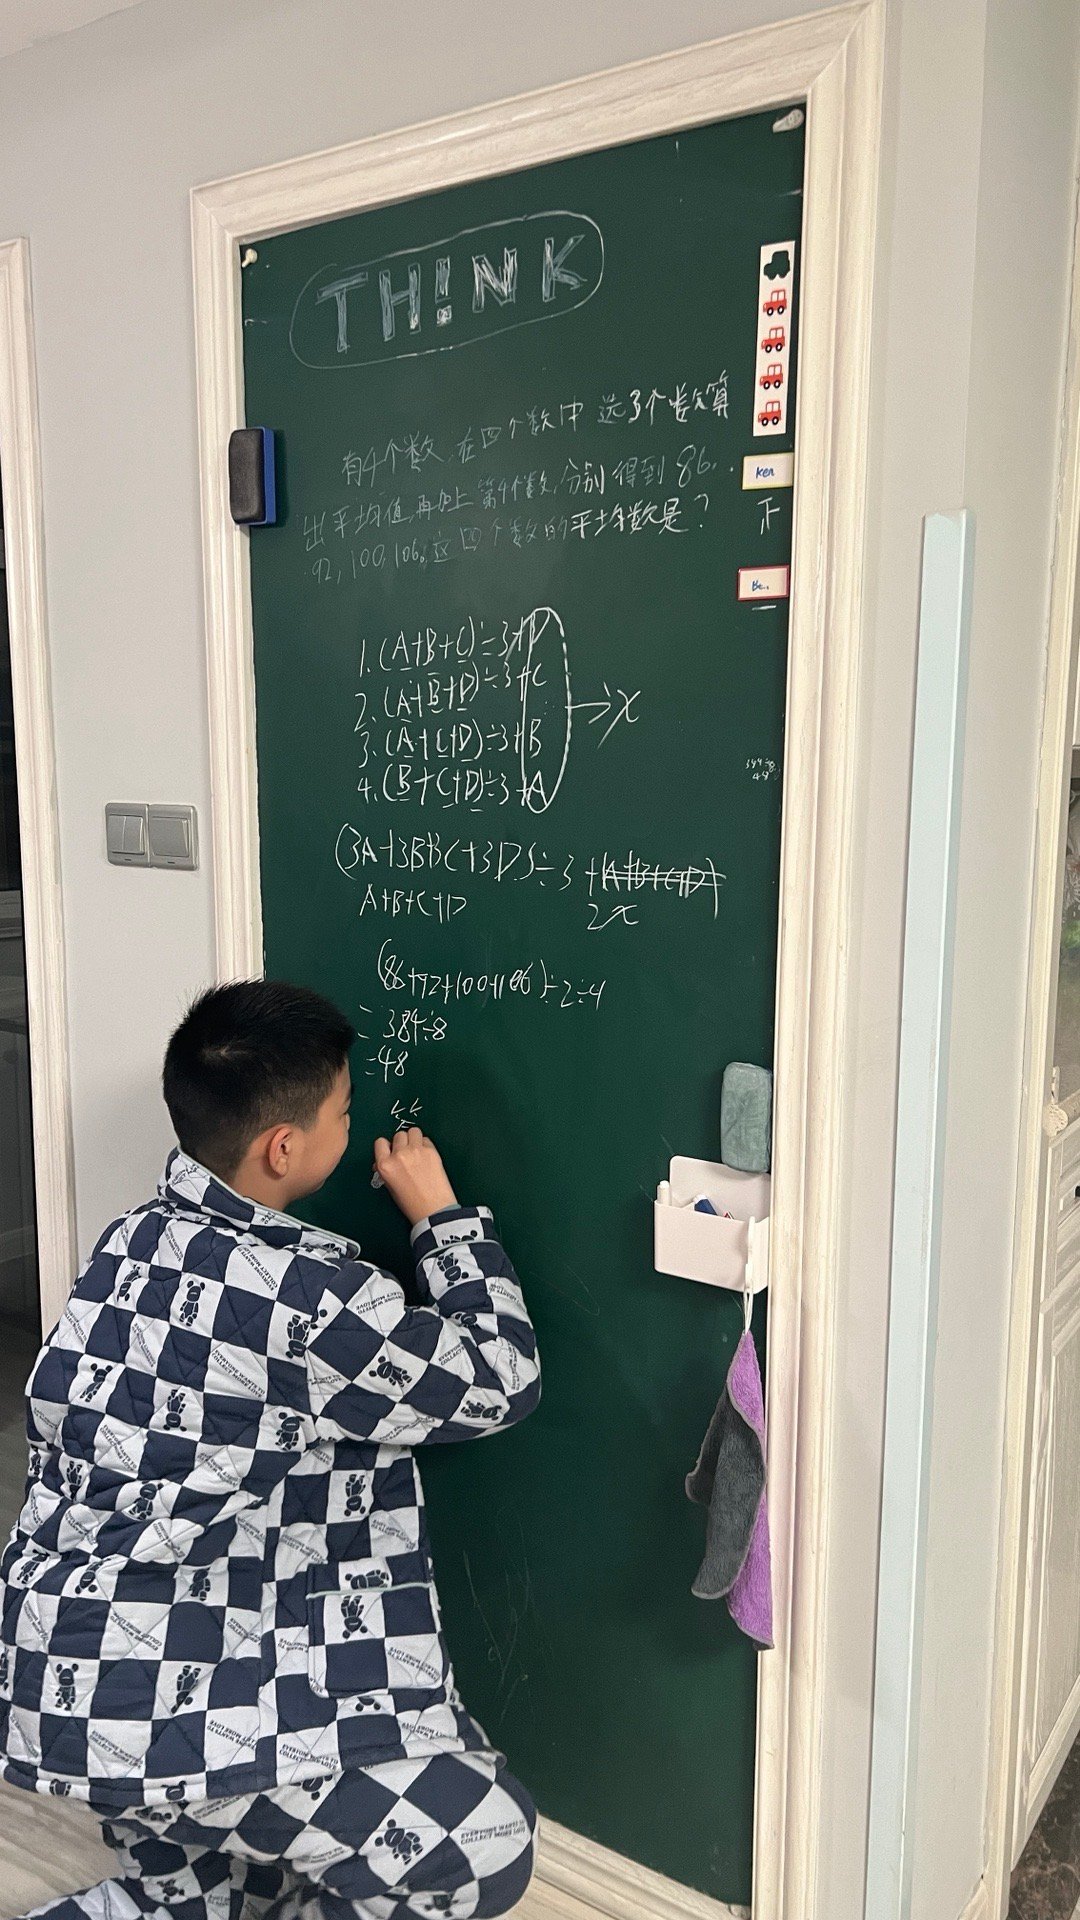 TH!NK
有4个数,在四个数中选3个数算
出平均值,再加上第4个数,分别得到86.
92,100,106。这四个数的平均数是?
ken
正
1.(A+B+C)÷3+D
2.(A+B+D)÷3+C
3.(A+C+D)÷3+B
4.(B+C+D)÷3+A
→x
(3A+3B+3C+3D)÷3+(A+B+C+D)
A+B+C+D
2x
384÷8
48
(86+92+100+106)÷2÷4
=384÷8
=48